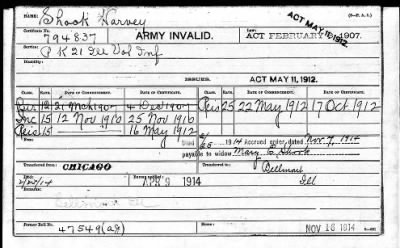 NAME: Shook Harvey
ACT MAY 11, 1912.
Certificate No. 794837
ARMY INVALID.
ACT FEBRUARY 1907.
Service P K 21 Ill Vol Inf
Disability:
ISSUES. ACT MAY 11, 1912.
CLASS. RATE. DATE OF COMMENCEMENT. DATE OF CERTIFICATE. CLASS. RATE. DATE OF COMMENCEMENT. DATE OF CERTIFICATE.
12 1907 4 1907 Reis 25 22 May 1912 17 Oct 1912
Inc 15 12 Nov 1910 25 Nov 1910
Reis 15 16 May 1912
1914 Accrued order, dated Nov 7, 1914
payable to widow Mary E. Shook
Transferred from CHICAGO
Bellmont
Ill
APR 9 1914
Former Roll No. 47549
NOV 16 1914